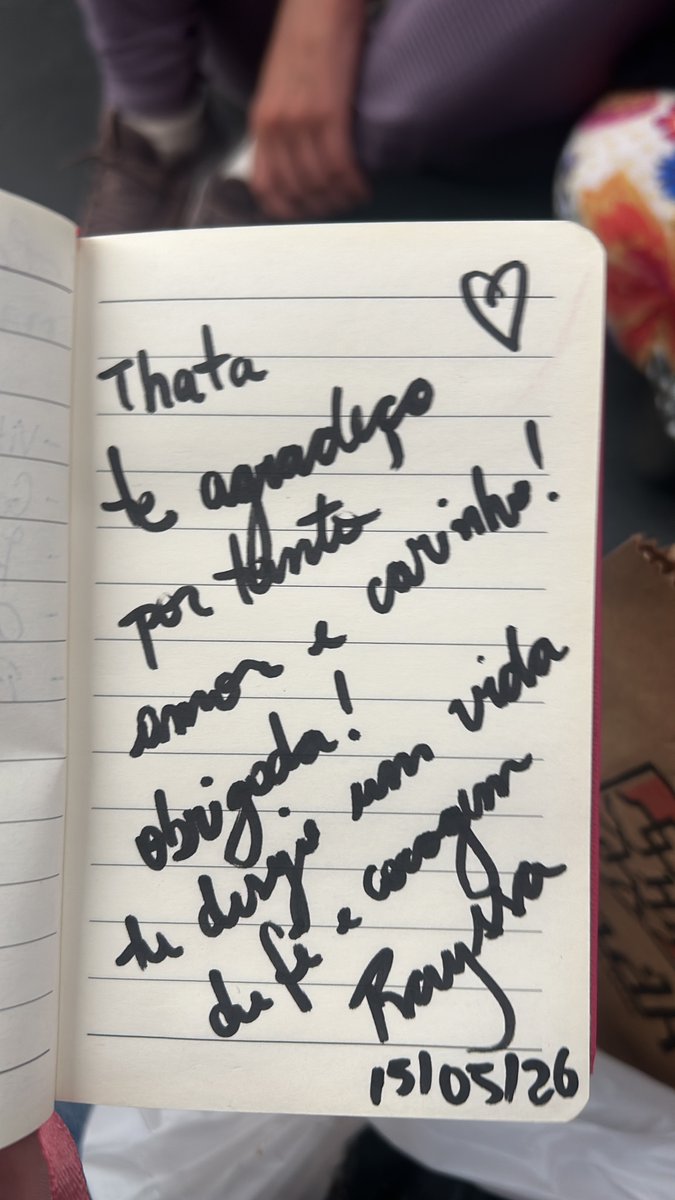 Thata
te agradeço
por tanto
amor e carinho!
obrigada!
te desejo um vida
de fé e coragem
Rayssa
15/05/26